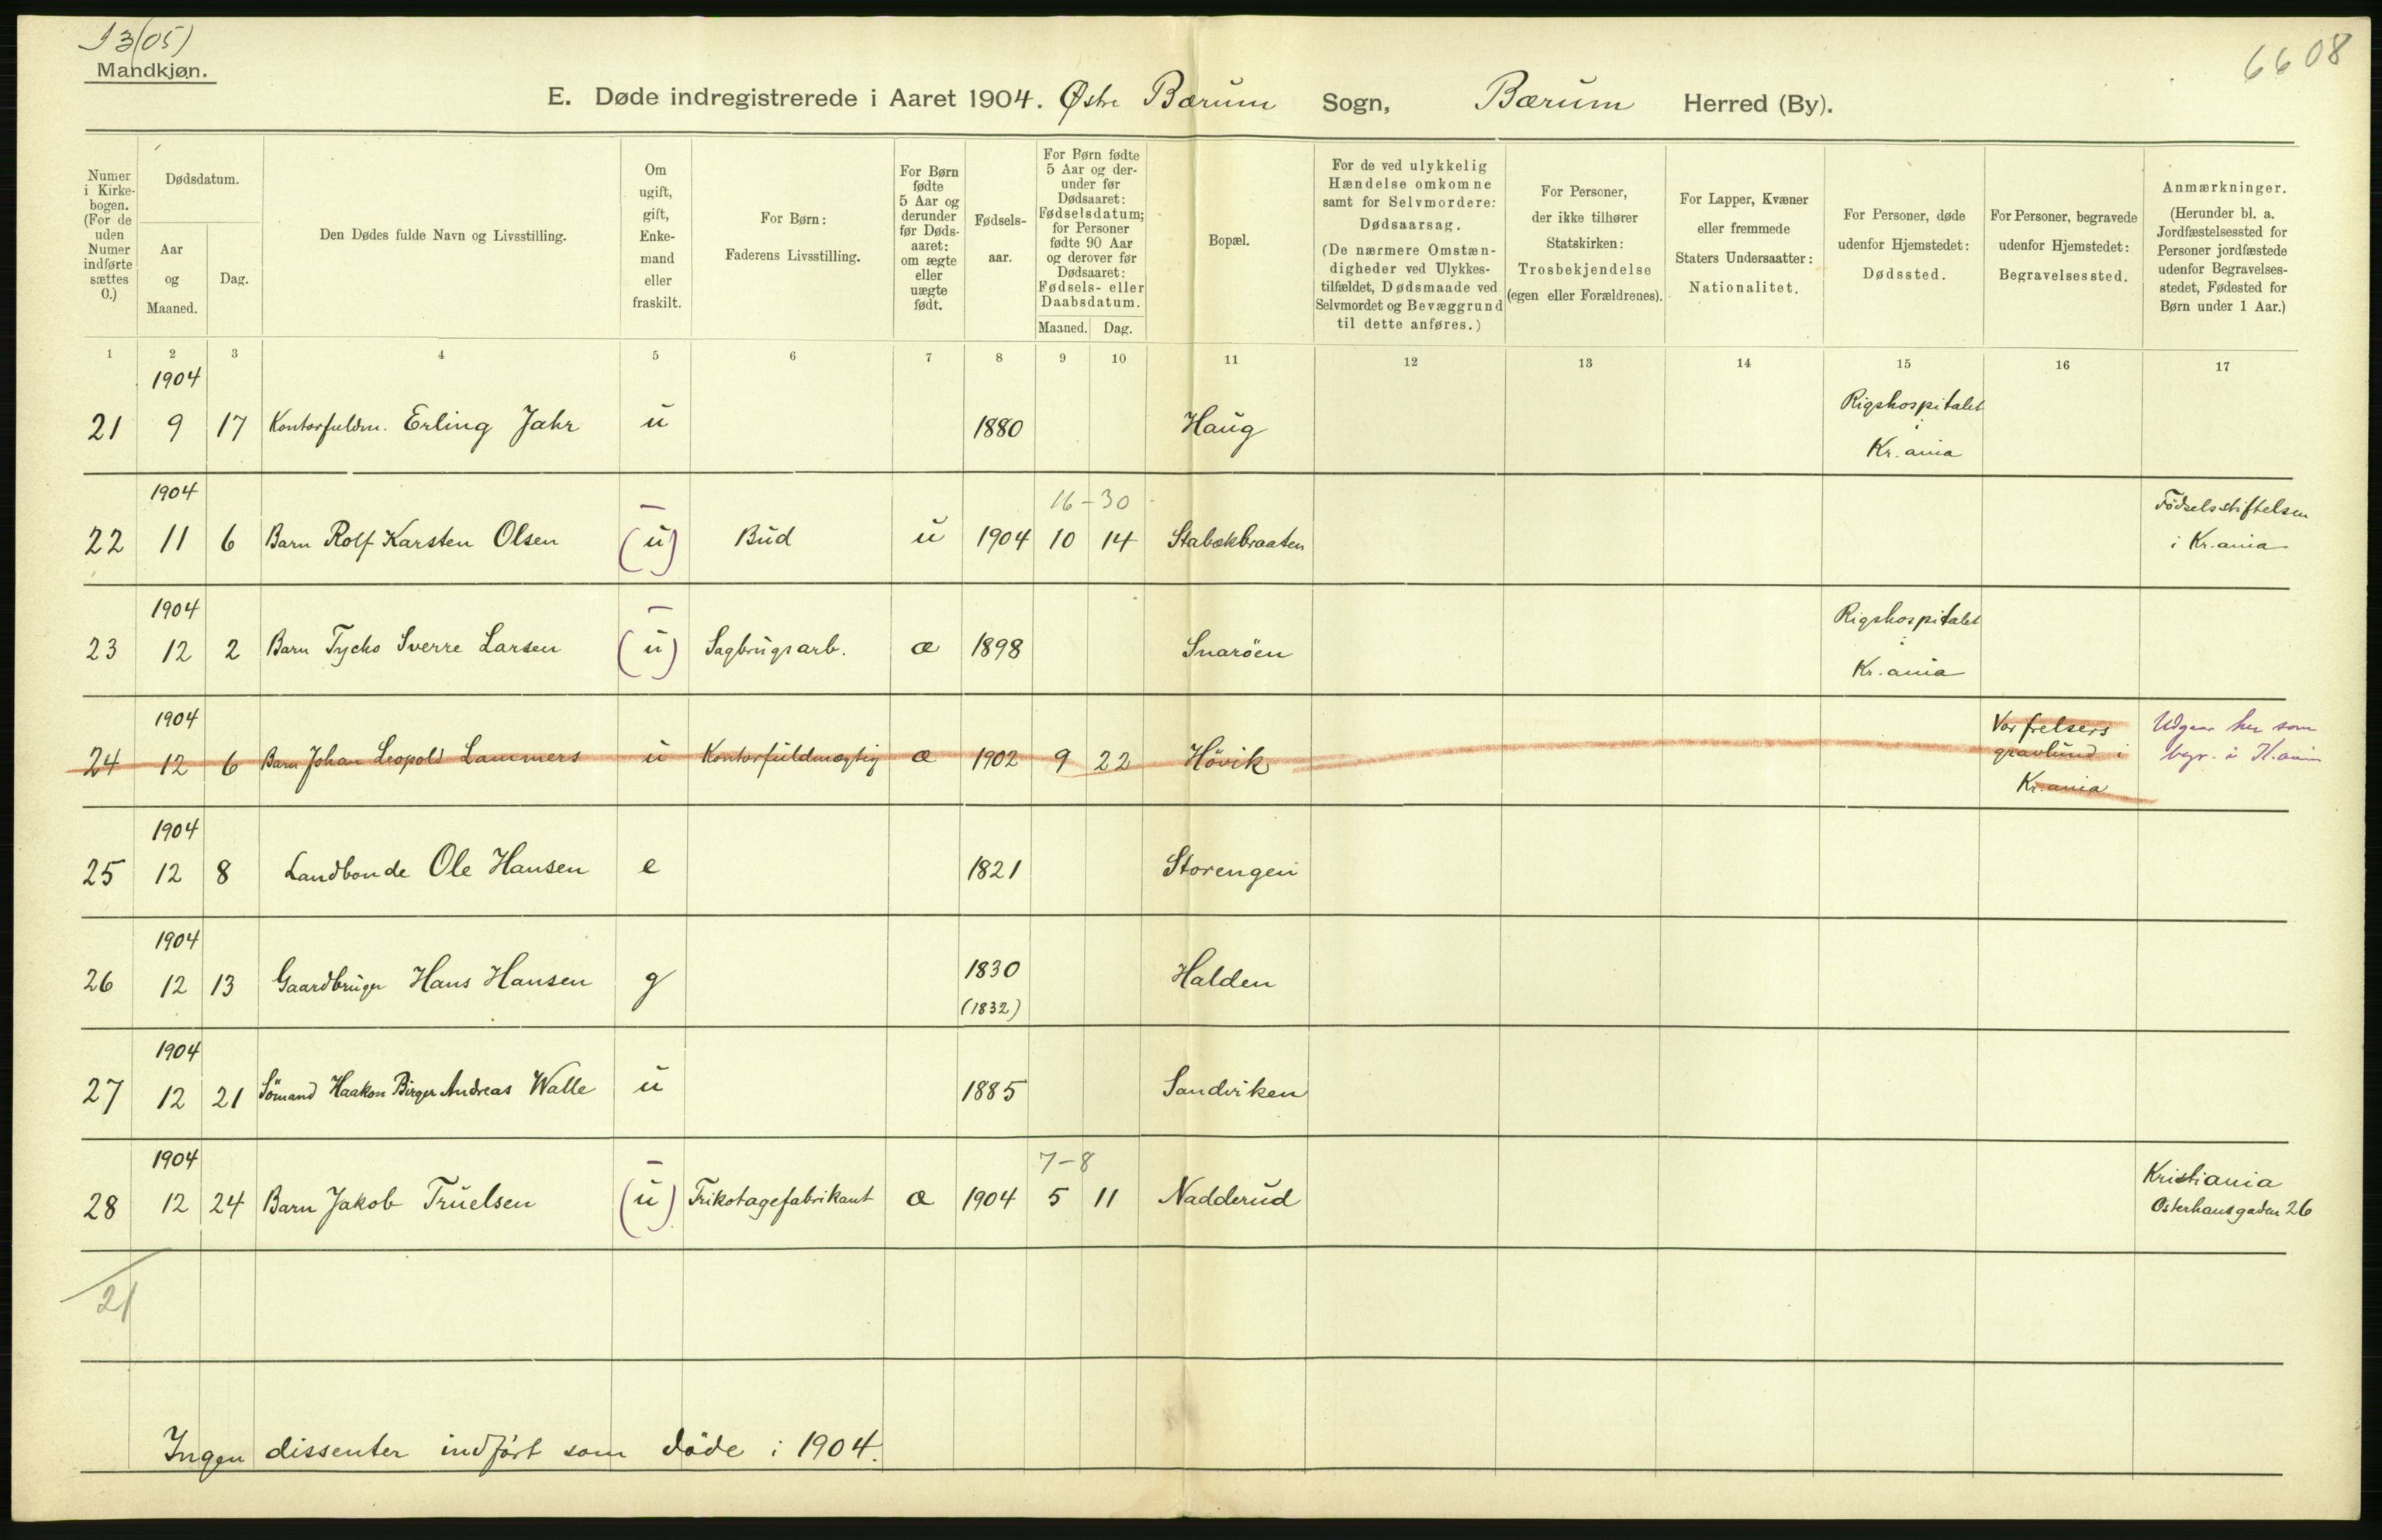 13(05)
6608
Mandkjøn.
E. Døde indregistrerede i Aaret 1904. Østre Bærum Sogn, Bærum Herred (By).
Numer
i Kirke-
bogen.
(For de
uden
Numer
indførte
sættes
0.)
Dødsdatum.
Aar
og
Maaned.
Dag.
Den Dødes fulde Navn og Livsstilling.
Om
ugift,
gift,
Enke-
mand
eller
fraskilt.
For Børn:
Faderens Livsstilling.
For Børn
fødte
5 Aar og
derunder
før Døds-
aaret:
om ægte
eller
uægte
født.
Fødsels-
aar.
For Børn fødte
5 Aar og der-
under før
Dødsaaret:
Fødselsdatum;
for Personer
fødte 90 Aar
og derover før
Dødsaaret:
Fødsels- eller
Daabsdatum.
Maaned. Dag.
Bopæl.
For de ved ulykkelig
Hændelse omkomne
samt for Selvmordere:
Dødsaarsag.
(De nærmere Omstæn-
digheder ved Ulykkes-
tilfældet, Dødsmaade ved
Selvmordet og Bevæggrund
til dette anføres.)
For Personer,
der ikke tilhører
Statskirken:
Trosbekjendelse
(egen eller Forældrenes).
For Lapper, Kvæner
eller fremmede
Staters Undersaatter:
Nationalitet.
For Personer, døde
udenfor Hjemstedet:
Dødssted.
For Personer, begravede
udenfor Hjemstedet:
Begravelsessted.
Anmærkninger.
(Herunder bl. a.
Jordfæstelsessted for
Personer jordfæstede
udenfor Begravelses-
stedet, Fødested for
Børn under 1 Aar.)
1 2 3 4 5 6 7 8 9 10 11 12 13 14 15 16 17
1904
21 9 17 Kontorfuldm. Erling Jahr u 1880 Haug Rigshospitalet
i
Kr.ania
1904 16-30 Födselsstiftelsen
22 11 6 Barn Rolf Karsten Olsen (u) Bud u 1904 10 14 Stabækbraaten i Kr.ania
1904 Rigshospitalet
23 12 2 Barn Tycho Sverre Larsen (u) Sagbrugsarb. æ 1898 Snaröen i
Kr.ania
1904 Vor frelsers Udgaar her som
24 12 6 Barn Johan Leopold Lammers u Kontorfuldmægtig æ 1902 9 22 Hövik gravlund i begr. i K.ania
Kr.ania
1904
25 12 8 Landbonde Ole Hansen e 1821 Storengen
1904
26 12 13 Gaardbruger Hans Hansen g 1830 Halden
(1832)
1904
27 12 21 Sömand Haakon Birger Andreas Walle u 1885 Sandviken
1904 7-8 Kristiania
28 12 24 Barn Jakob Truelsen (u) Trikotagefabrikant æ 1904 5 11 Nadderud Osterhausgaden 26
21
Ingen dissenter indfört som döde i 1904.